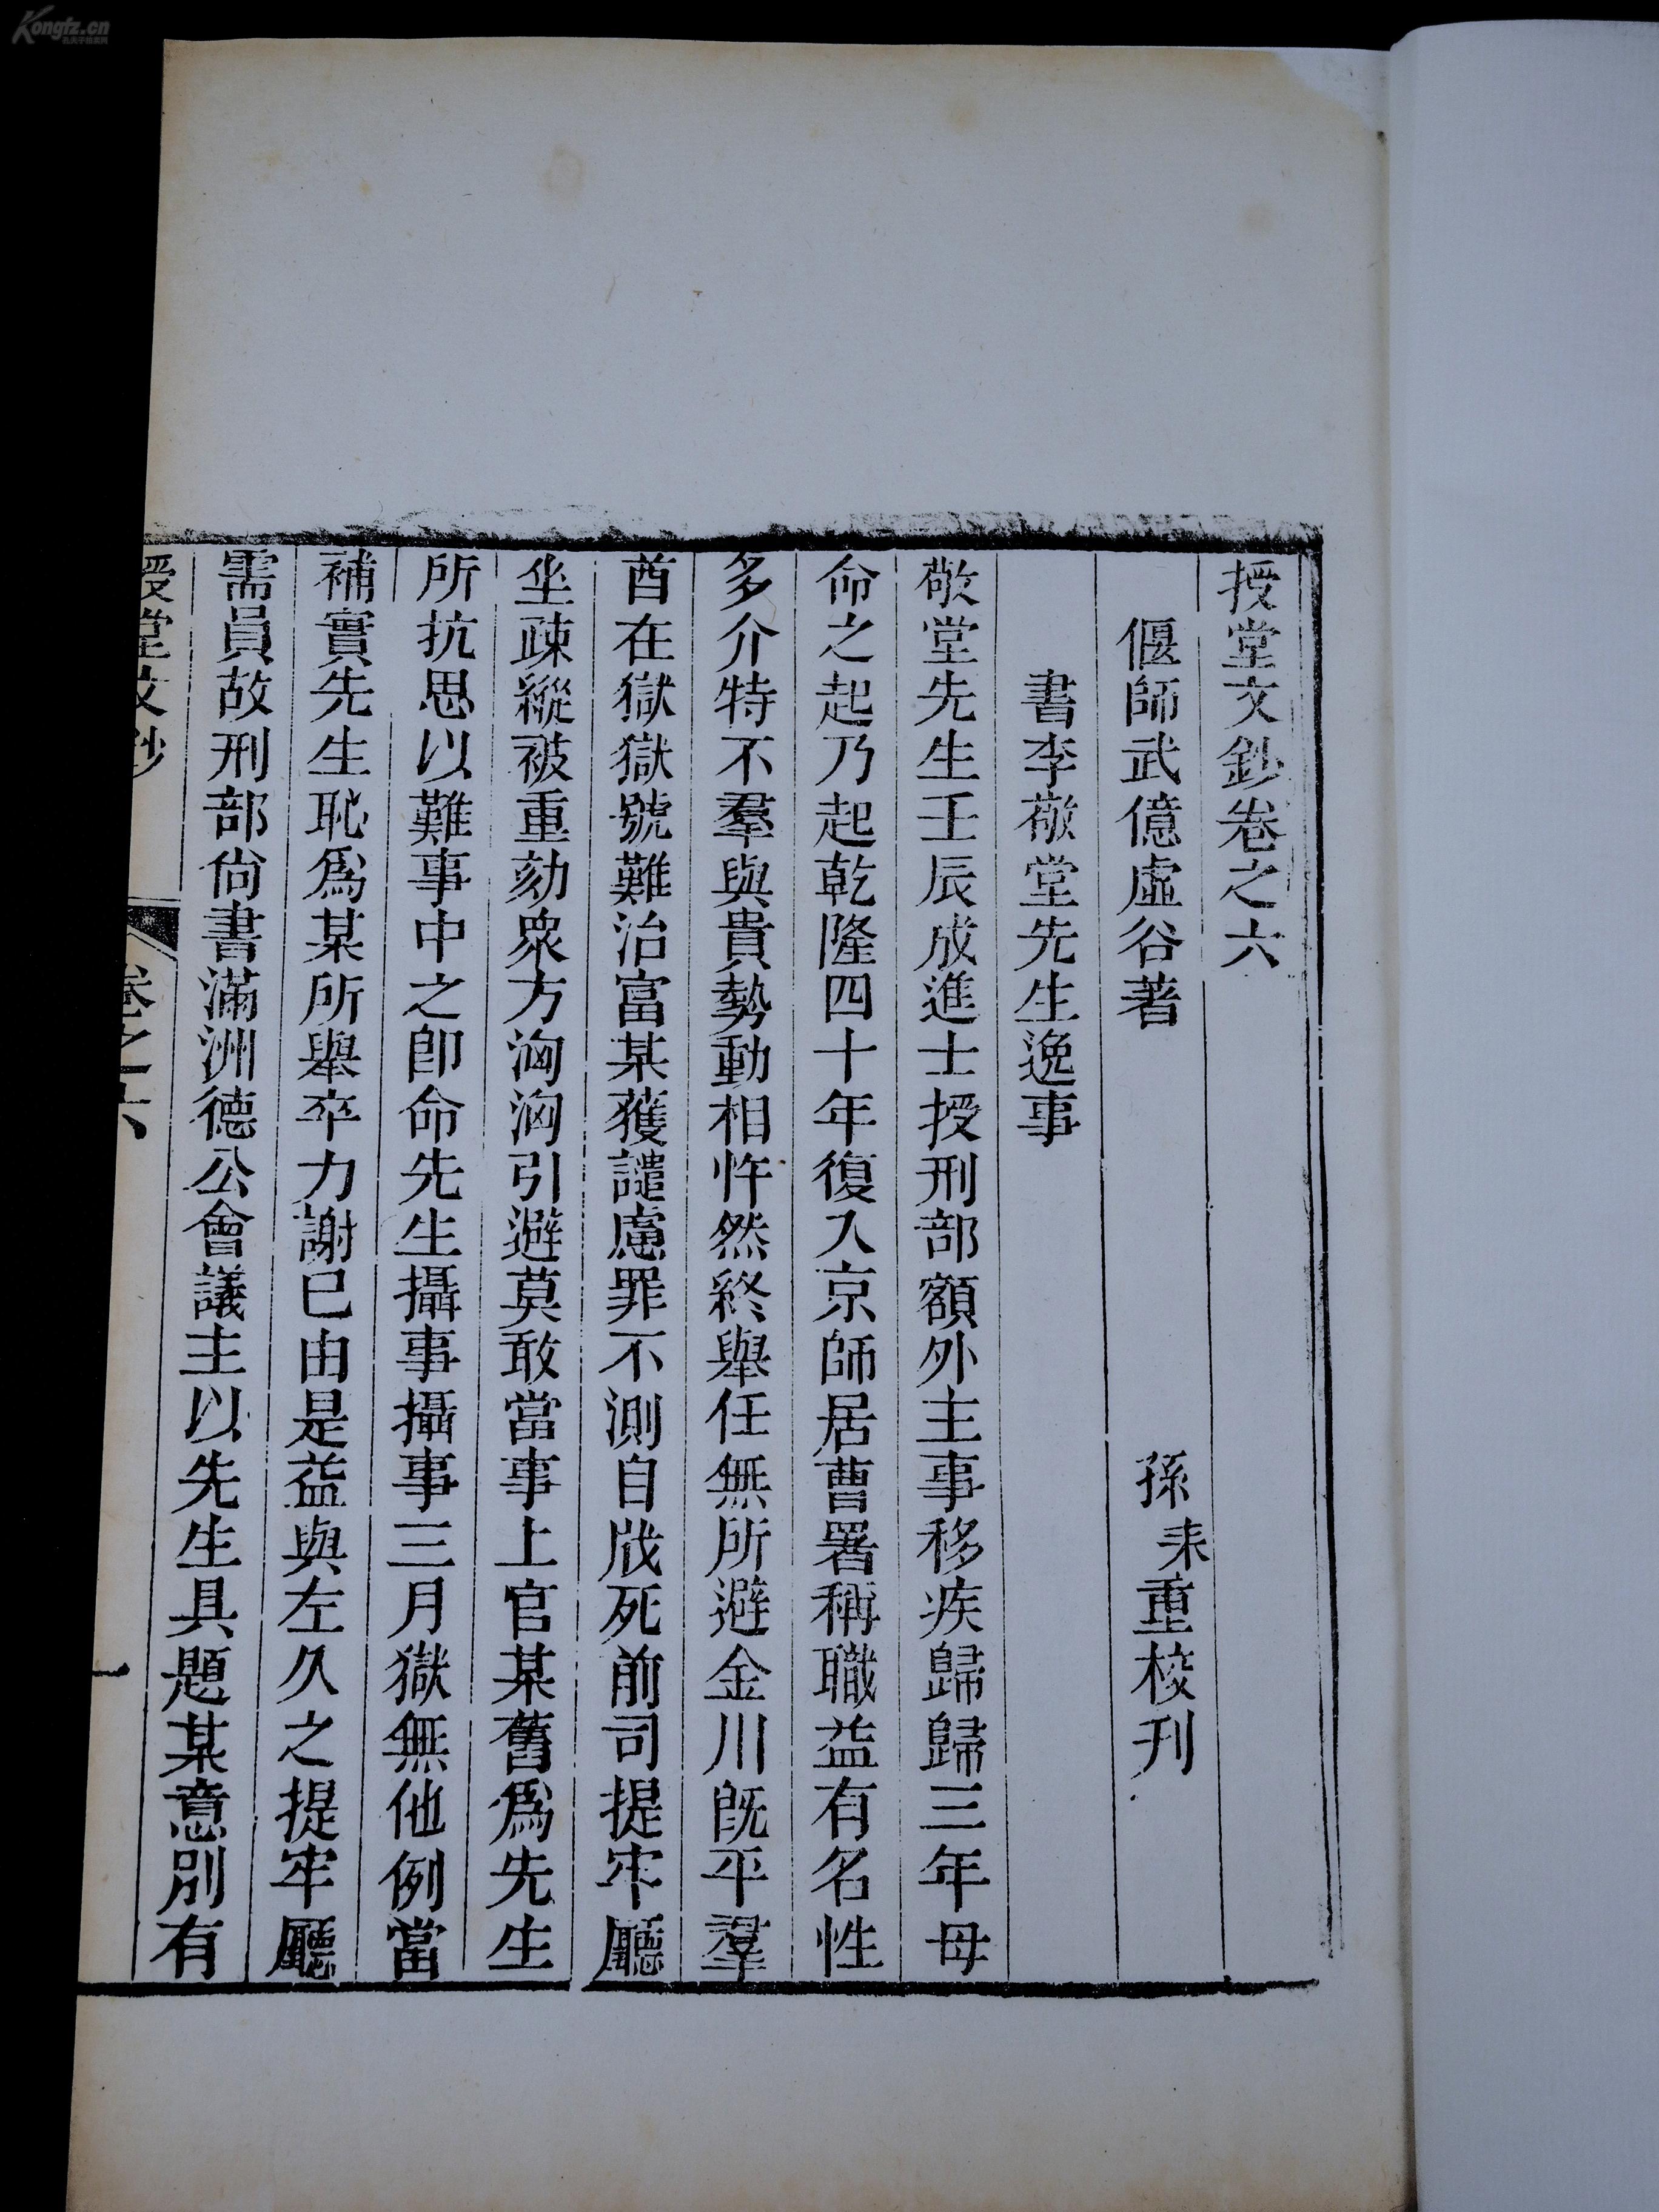 授堂文鈔卷之六
偃師武億虛谷著 孫耒重校刊
書李敬堂先生逸事
敬堂先生壬辰成進士授刑部額外主事移疾歸歸三年母
命之起乃起乾隆四十年復入京師居曹署稱職益有名性
多介特不羣與貴勢動相忤然終舉任無所避金川既平羣
酋在獄獄號難治富某獲譴慮罪不測自戕死前司提牢廳
坐疎縱被重劾衆方洶洶引避莫敢當事上官某舊爲先生
所抗思以難事中之卽命先生攝事攝事三月獄無他例當
補實先生恥爲某所舉卒力謝已由是益與左久之提牢廳
需員故刑部尙書滿洲德公會議主以先生具題某意別有
授堂文鈔 卷之六 一
Kongfz.cn